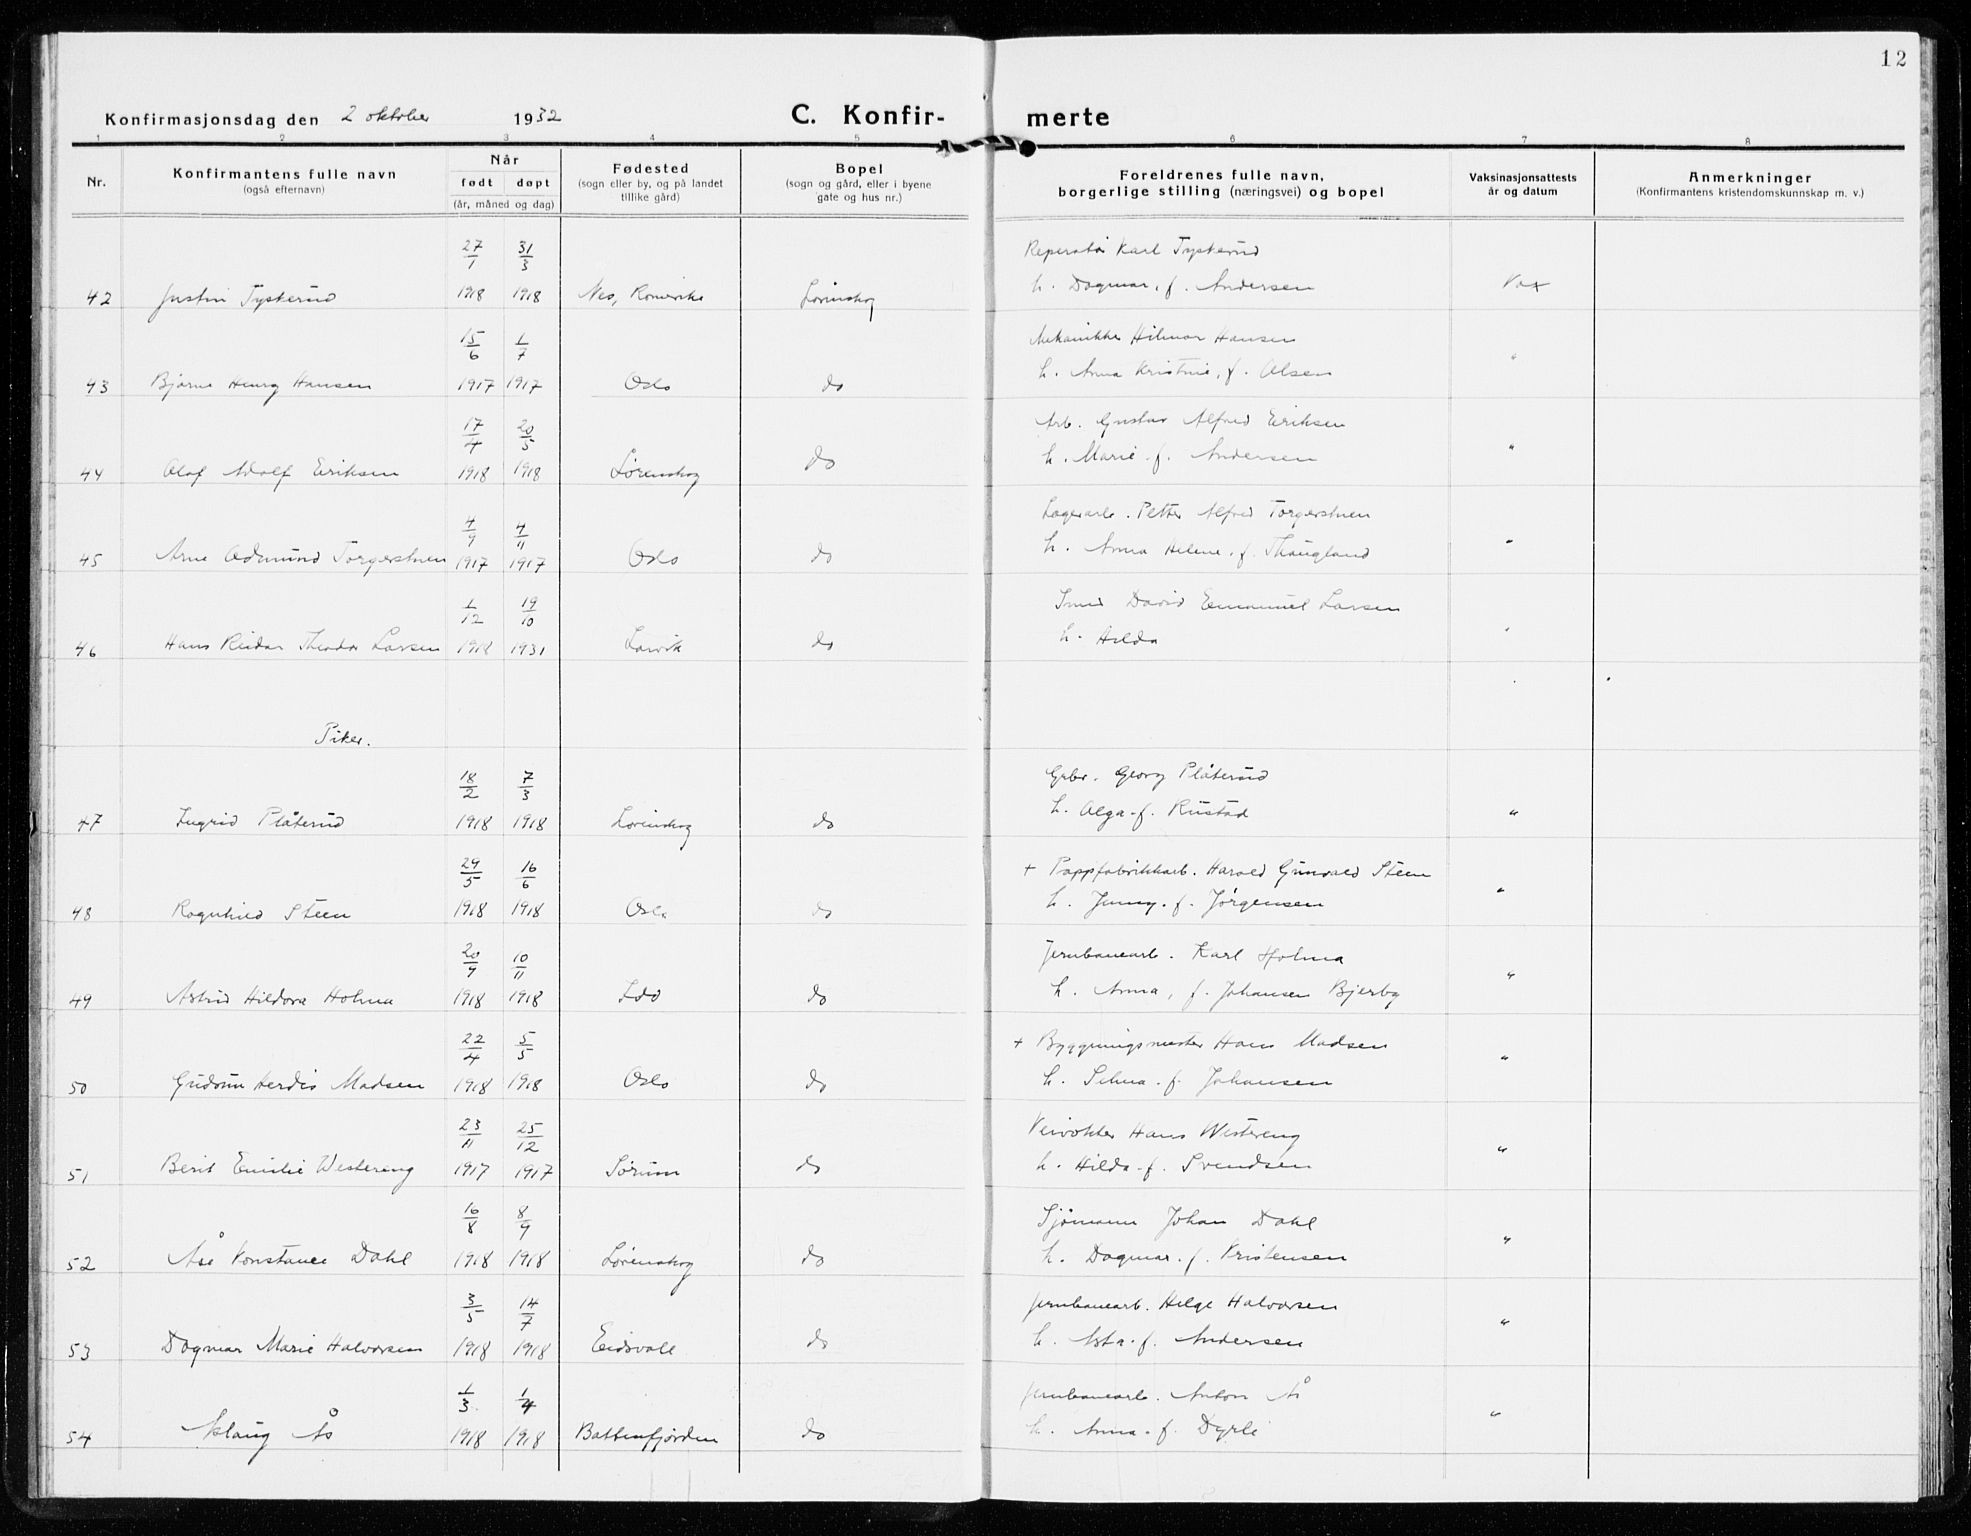 12
Konfirmasjonsdag den 2 oktober 1932
C. Konfir-
merte
1 2 3 4 5 6 7 8
Nr.
Konfirmantens fulle navn
(også efternavn)
Når
født døpt
(år, måned og dag)
Fødested
(sogn eller by, og på landet
tillike gård)
Bopel
(sogn og gård, eller i byene
gate og hus nr.)
Foreldrenes fulle navn,
borgerlige stilling (næringsvei) og bopel
Vaksinasjonsattests
år og datum
Anmerkninger
(Konfirmantens kristendomskunnskap m. v.)
27/1 31/3 Reperatør Karl Tysterud
42 Justin Tysterud 1918 1918 Nes, Romerike Lørenskog h. Dagmar, f. Andersen Vax
15/6 1/7 Mekanikker Hilmar Hansen
43 Bjarne Henry Hansen 1917 1917 Oslo do h. Anna Kristine, f. Olsen "
17/4 20/5 Arb. Gustav Alfred Eriksen
44 Olaf Adolf Eriksen 1918 1918 Lørenskog do h. Marie f. Andersen "
4/9 4/11 Lagerarb. Petter Alfred Torgerstuen
45 Arne Edmund Torgerstuen 1917 1917 Oslo do h. Anna Helene, f. Thaugland "
1/12 19/10 Smed David Emanuel Larsen
46 Hans Reidar Theodor Larsen 1918 1931 Larvik do h. Hilda "
Piker.
18/2 7/3 Grbr. Georg Plåterud
47 Ingrid Plåterud 1918 1918 Lørenskog do h. Olga f. Rustad "
29/5 16/6 + Pappfabrikkarb. Harald Gunvald Steen
48 Ragnhild Steen 1918 1918 Oslo do h. Jenny f. Jørgensen "
20/9 10/11 Jernbanearb. Karl Holma
49 Astrid Hildora Holma 1918 1918 Idd do h. Anna, f. Johansen Bjerby "
22/4 5/5 + Byggningsmester Hans Madsen
50 Gudrun Herdis Madsen 1918 1918 Oslo do h. Selma f. Johansen "
23/11 25/12 Veivokter Hans Westereng
51 Berit Emilie Westereng 1917 1917 Sørum do h. Hilda f. Svendsen "
16/8 8/9 Sjømann Johan Dahl
52 Åse Konstance Dahl 1918 1918 Lørenskog do h. Dagmar f. Kristensen "
3/5 14/7 Jernbanearb. Helge Halvorsen
53 Dagmar Marie Halvorsen 1918 1918 Eidsvoll do h. Asta f. Andersen "
1/3 1/4 Jernbanearb. Anton Ås
54 Aslaug Ås 1918 1918 Battenfjorden do h. Anna f. Dyrli "